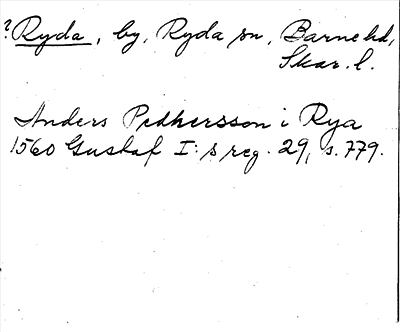 ? Ryda, by, Ryda sn, Barne hd,
Skar. l.
Anders Pedhersson i Rya
1560 Gustaf I:s reg. 29, s. 779.